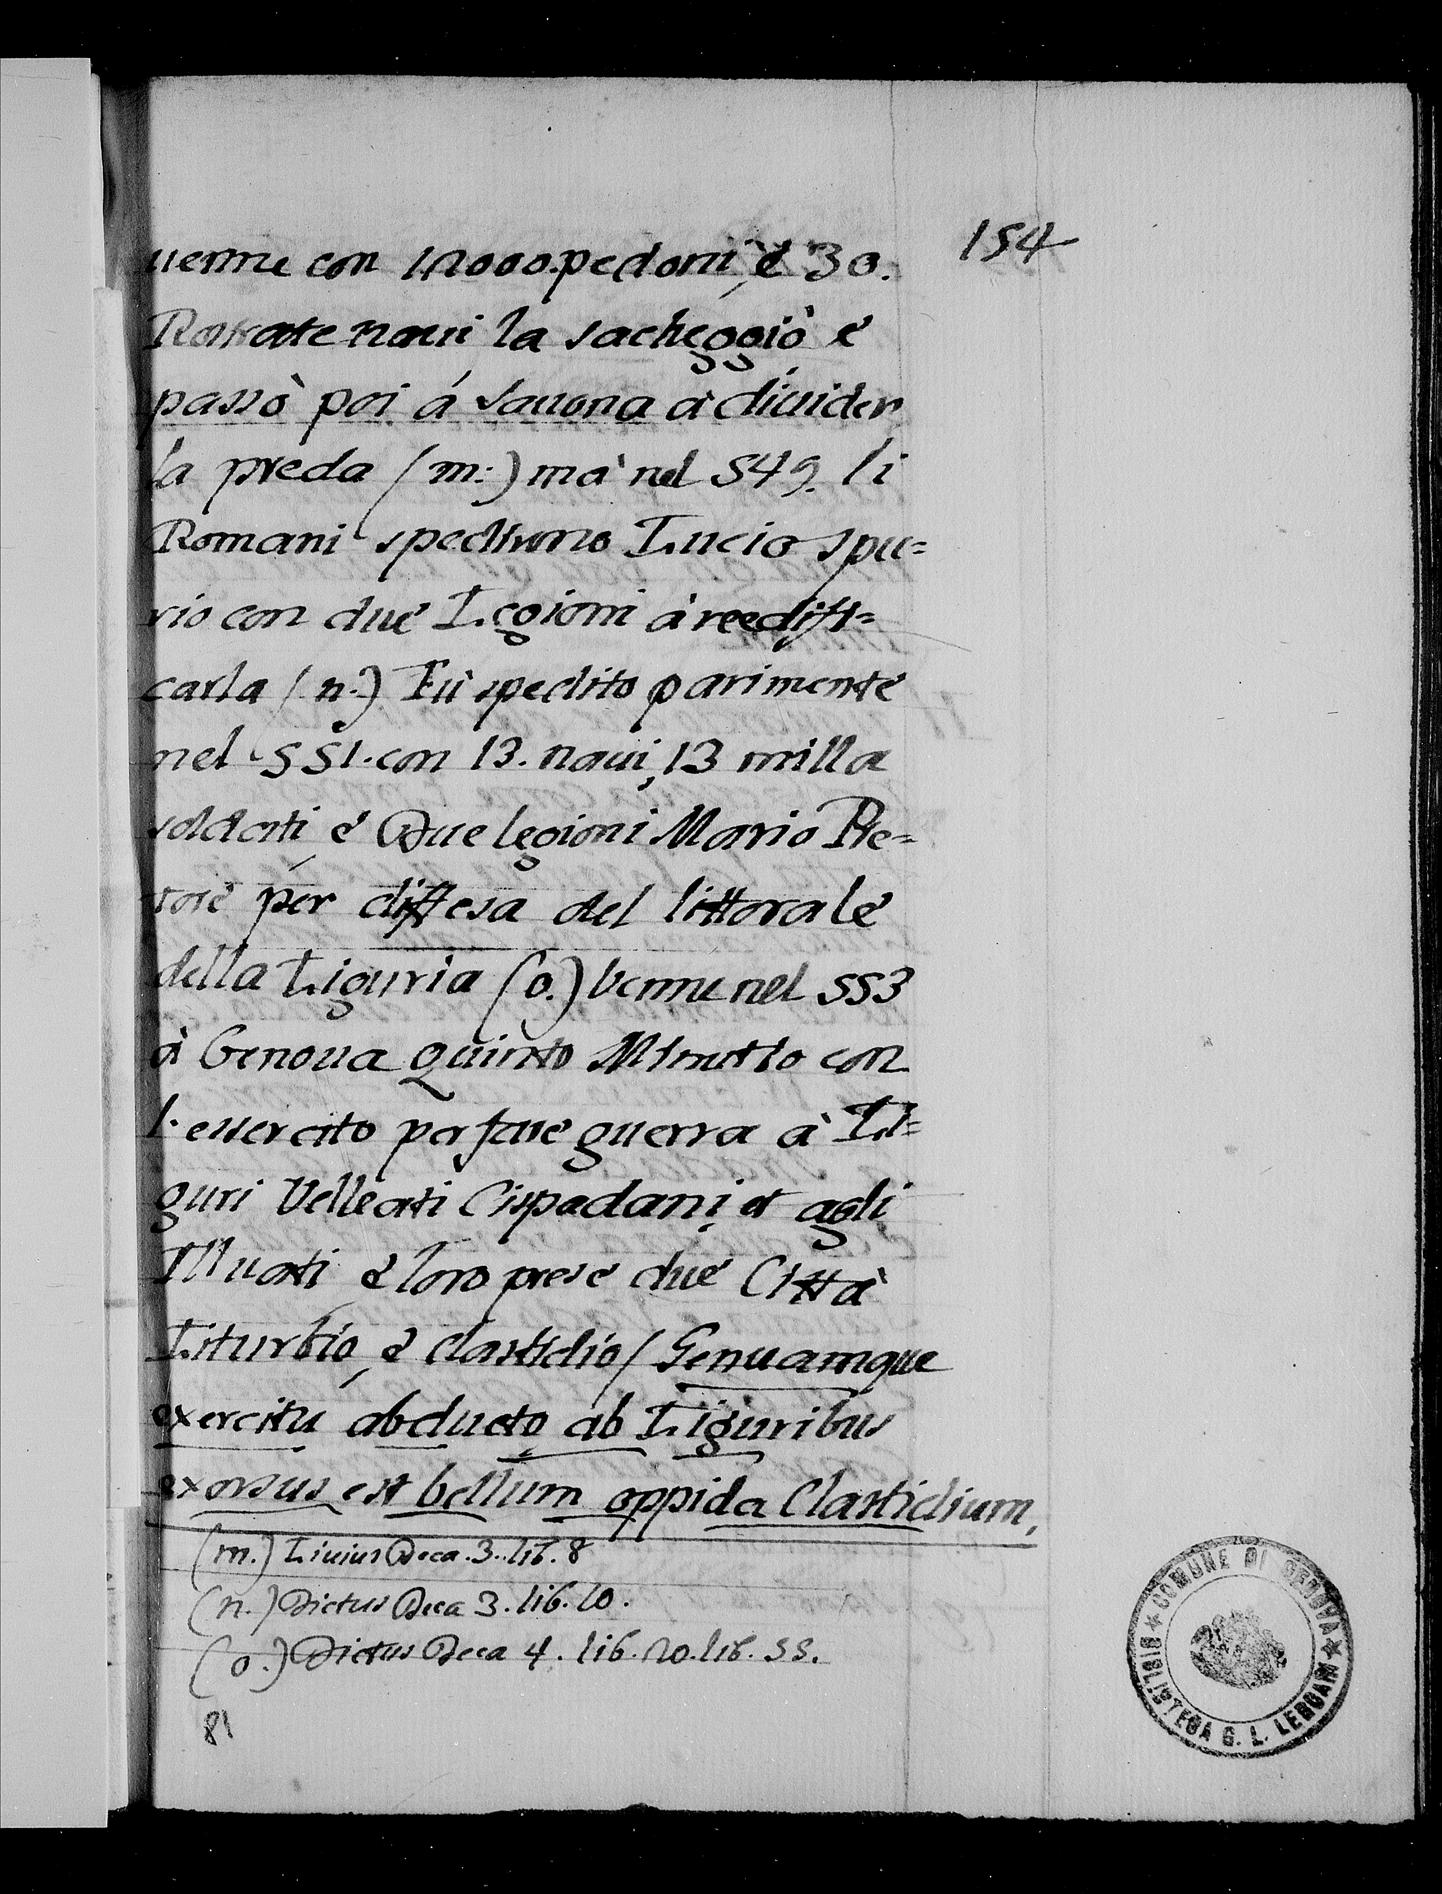 154
uenne con 12000. pedoni, è 30.
Rostrate naui la sacheggiò è
passò poi á Sauona à diuider
la preda (m:) mà nel 549. li
Romani spedirono Lucio Spu=
rio con due Legioni à reedifi=
carla (n.) Fù spedito parimente
nel 551. con 13. naui, 13 milla
soldati, è Due legioni Mario Pre=
tore per diffesa del littorale
della Liguria (o.) Venne nel 553
à Genoua Quinto Minutio con
l'essercito per fare guerra à Li=
guri Velleati Cispadani, et agli
Illuati è loro prese due Città
Liturbio, è Clastidio / Genuamque
exercitu abducto ab Liguribus
exorsus est bellum oppida Clastidium,
(m.) Liuius Deca. 3. lib. 8
(n.) Dictus Deca 3. lib. 10.
(o.) Dictus Deca 4. lib. 20. lib. 55.
81
★ COMUNE DI GENOVA ★
BIBLIOTECA G. L. LERCARI